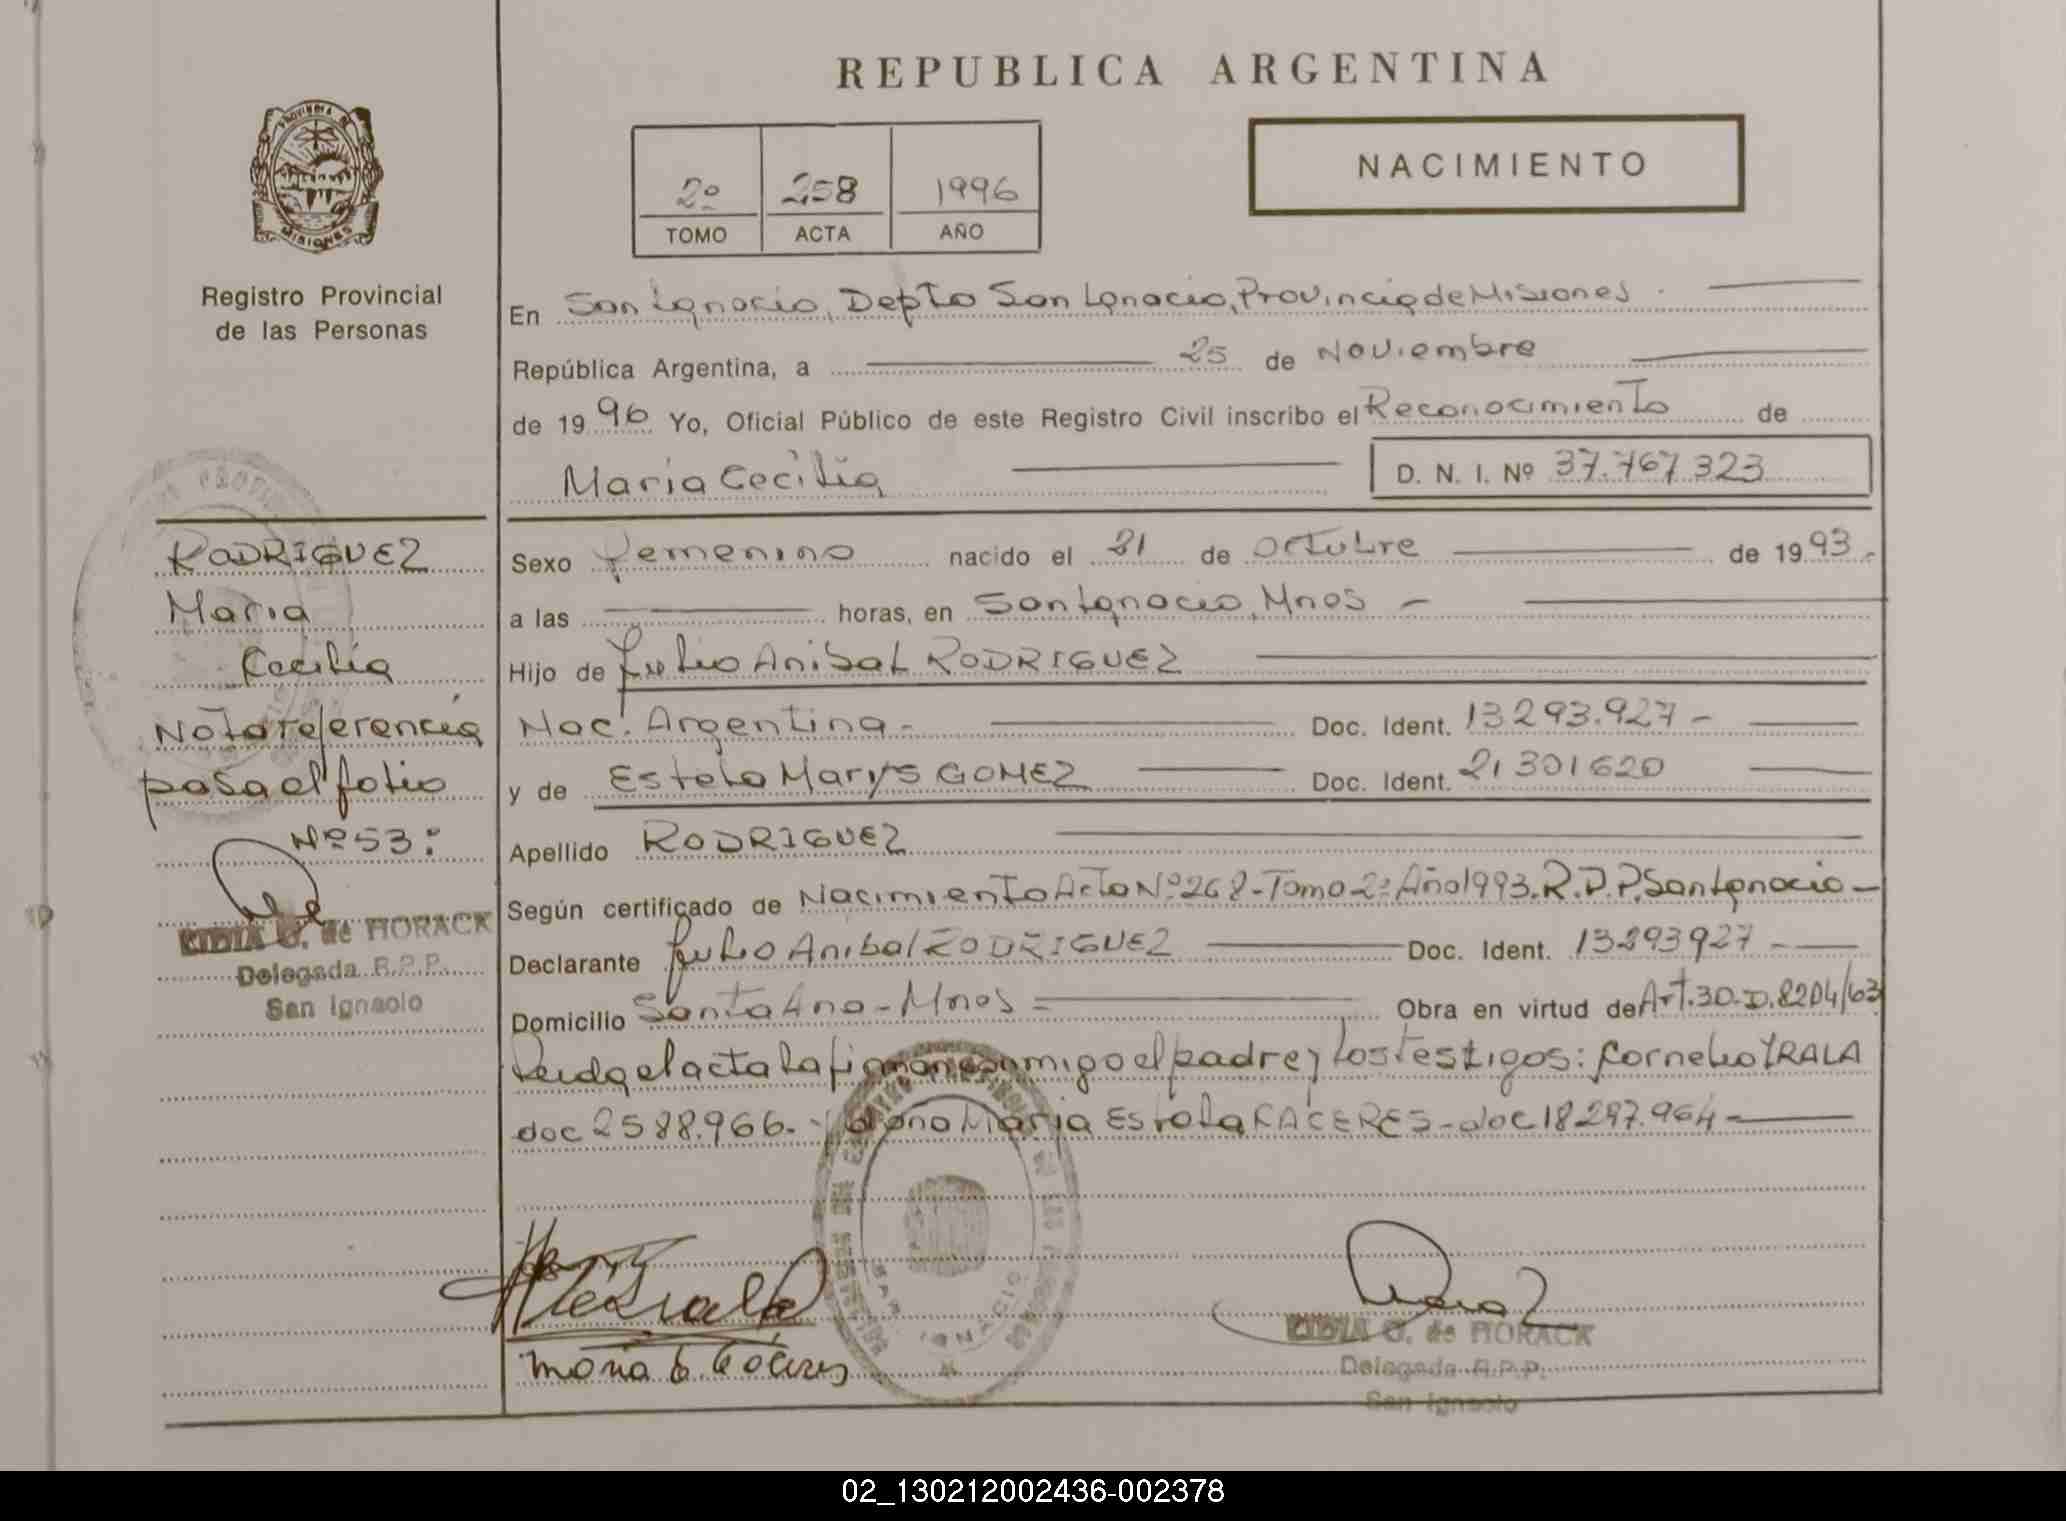 REPUBLICA ARGENTINA
PROVINCIA DE
MISIONES
Registro Provincial
de las Personas
2º 258 1996
TOMO ACTA AÑO
NACIMIENTO
En San Ignacio, Depto San Ignacio, Provincia de Misiones
República Argentina, a 25 de Noviembre
de 1996 Yo, Oficial Público de este Registro Civil inscribo el Reconocimiento de
Maria Cecilia D. N. I. Nº 37.767.323
RODRIGUEZ
Maria
Cecilia
Nota referencia
pasa al folio
Nº 53:
de HORACK
Delegada R.P.P.
San Ignacio
Sexo Femenino nacido el 21 de Octubre de 1993
a las horas, en San Ignacio, Mnes
Hijo de Julio Anibal RODRIGUEZ
Nac. Argentina. Doc. Ident. 13293.927
y de Estela Marys GOMEZ Doc. Ident. 21301620
Apellido RODRIGUEZ
Según certificado de Nacimiento Acta Nº 268-Tomo 2º Año 1993. R.D.P. San Ignacio
Declarante Julio Anibal RODRIGUEZ Doc. Ident. 13293927
Domicilio Santa Ana - Mnes Obra en virtud de Art. 30. D. 8204/63
Leida el acta la firman conmigo el padre y los testigos: Cornelio IRALA
doc 2588.966.- y dona Maria Estela CACERES - doc 18297.964
Maria E. Caceres
de HORACK
Delegada R.P.P.
San Ignacio
02_130212002436-002378